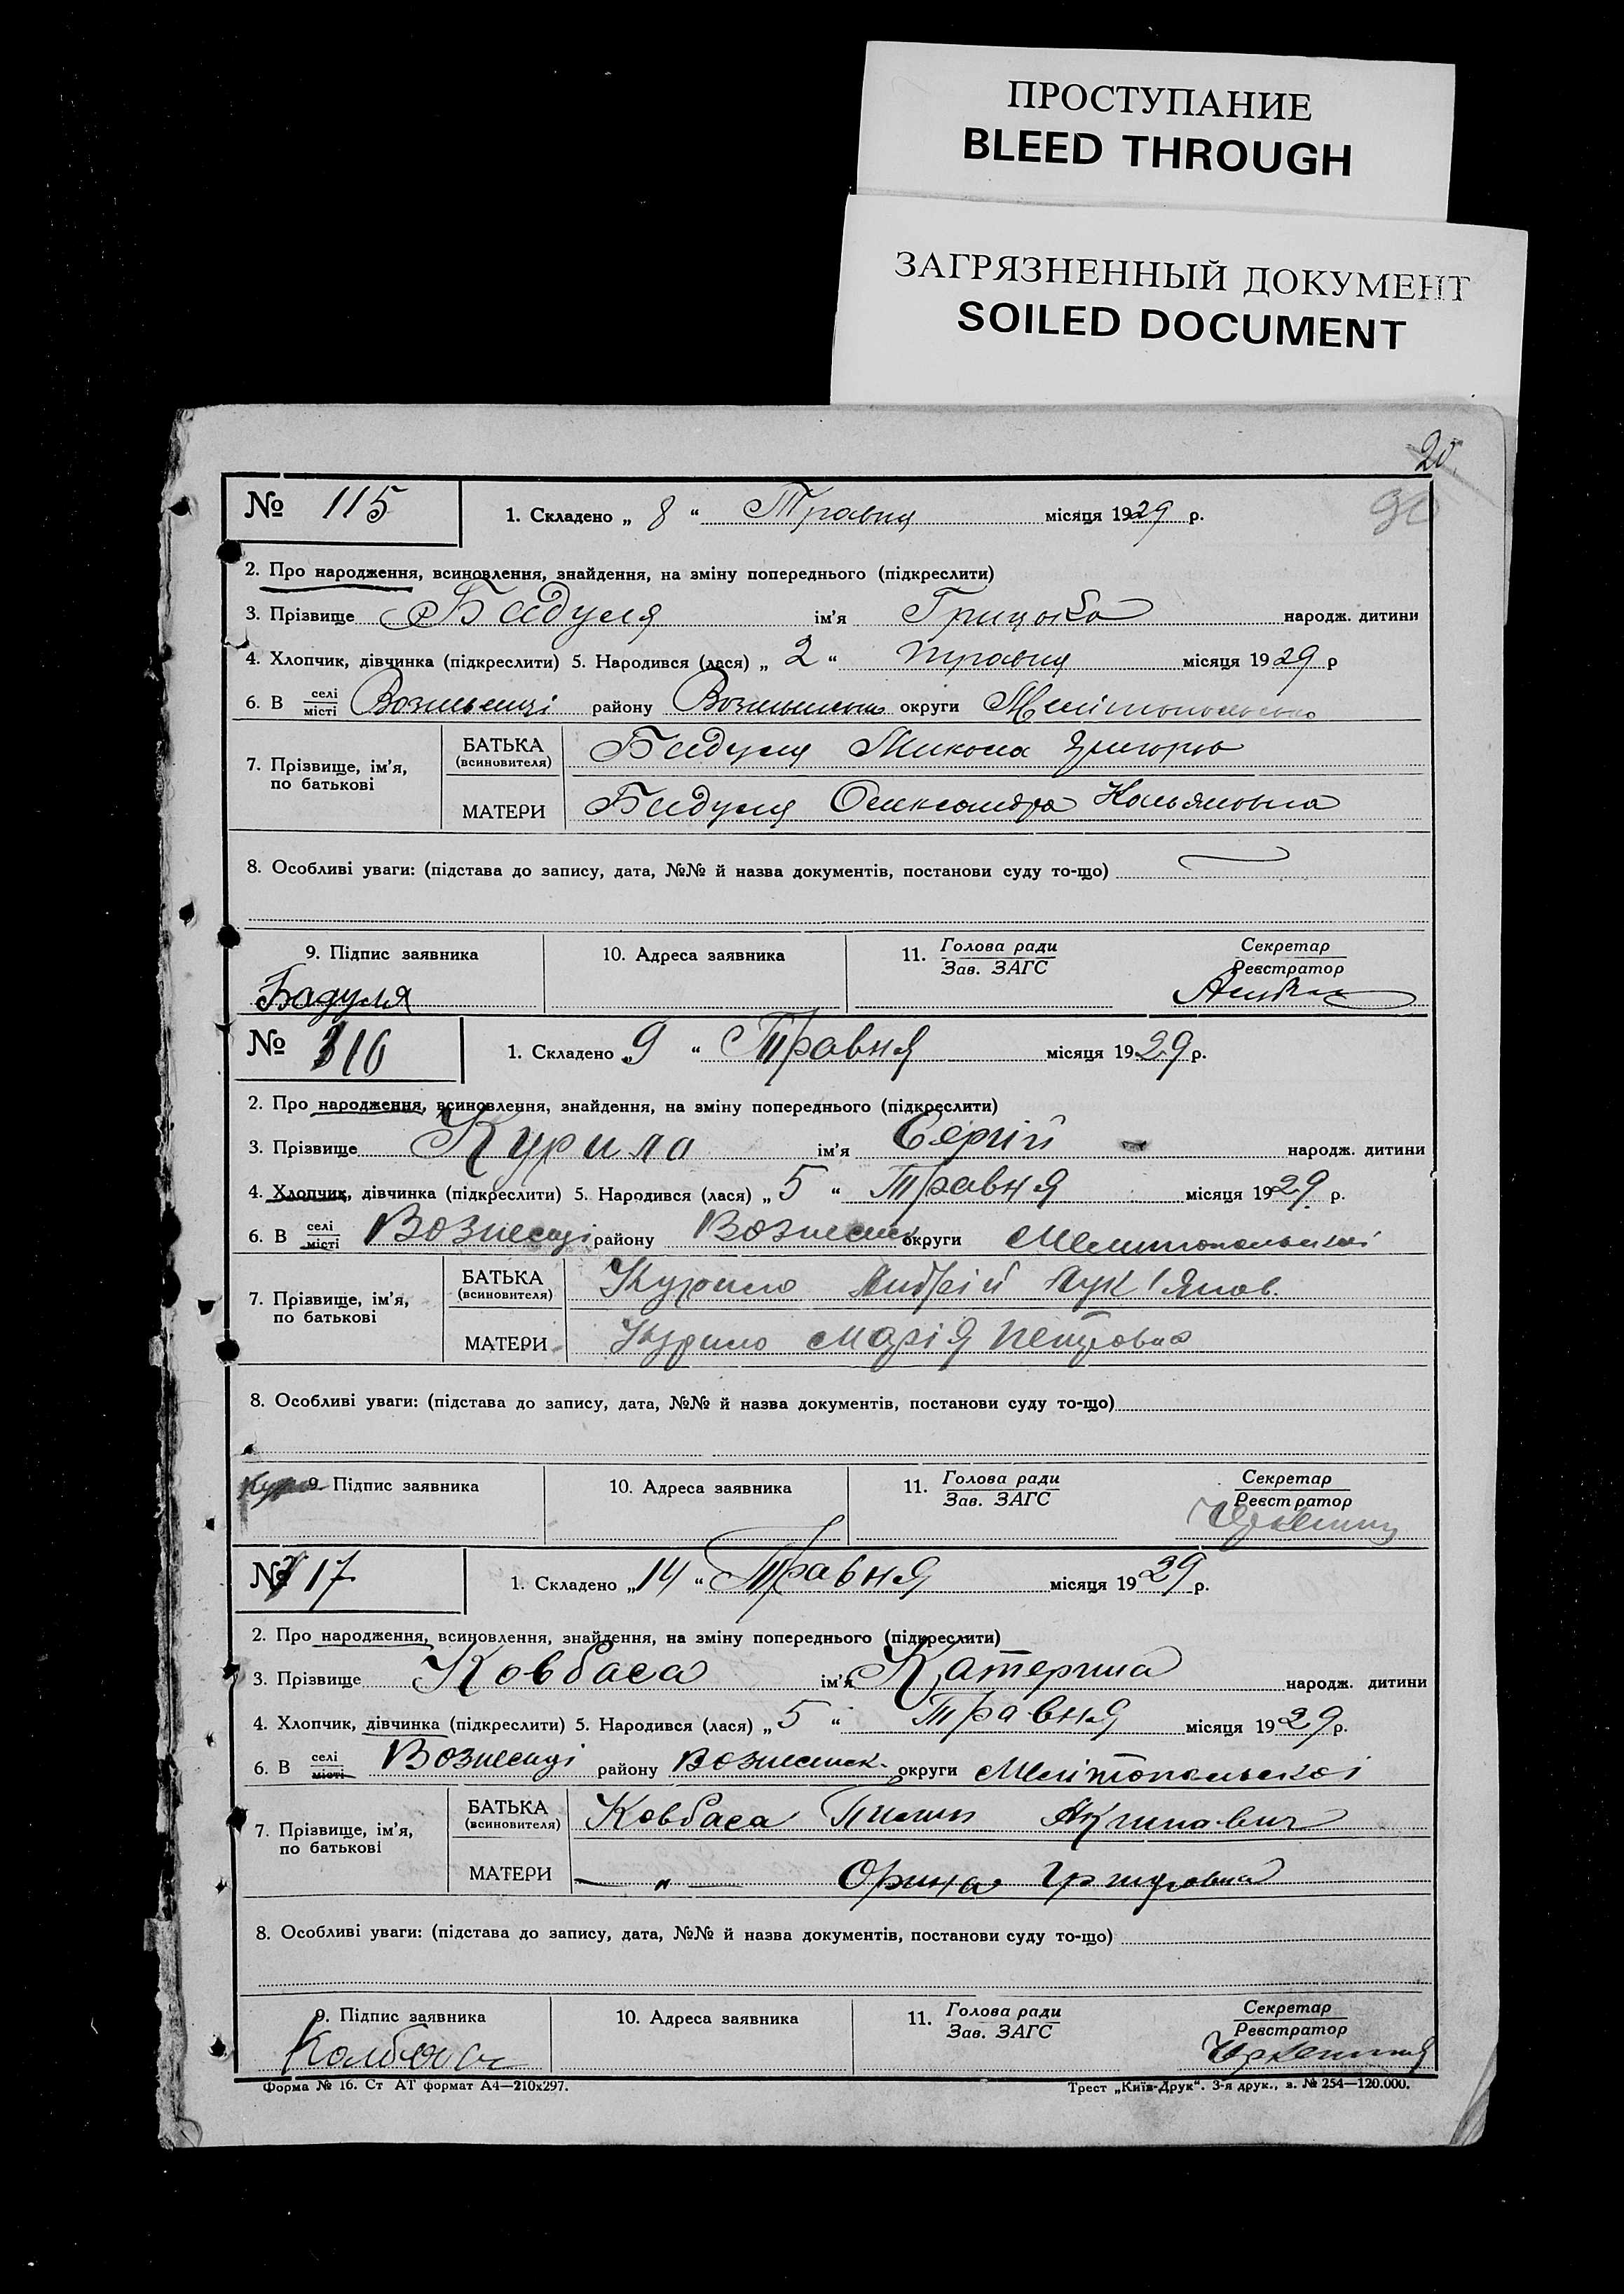 ПРОСТУПАНИЕ
BLEED THROUGH
ЗАГРЯЗНЕННЫЙ ДОКУМЕНТ
SOILED DOCUMENT
20
№ 115 1. Складено „ 8 “ Травня місяця 1929 р.
2. Про народження, всиновлення, знайдення, на зміну попереднього (підкреслити)
3. Прізвище Бадуля ім'я Грицько народж. дитини
4. Хлопчик, дівчинка (підкреслити) 5. Народився (лася) „ 2 “ травня місяця 1929 р
6. В селі місті району округи
БАТЬКА Бадуля Микола
7. Прізвище, ім'я, (всиновителя)
по батькові
МАТЕРИ Бадуля Олександра
8. Особливі уваги: (підстава до запису, дата, №№ й назва документів, постанови суду то-що)
9. Підпис заявника 10. Адреса заявника 11. Голова ради Секретар
Зав. ЗАГС Реєстратор
Бадуля
№ 116 1. Складено „ 9 “ Травня місяця 1929 р.
2. Про народження, всиновлення, знайдення, на зміну попереднього (підкреслити)
3. Прізвище Курило ім'я Сергій народж. дитини
4. Хлопчик, дівчинка (підкреслити) 5. Народився (лася) „ 5 “ Травня місяця 1929 р.
6. В селі місті Вознесенці району Вознесенськ округи Мелитопольської
БАТЬКА Курило Андрій Лук'янов.
7. Прізвище, ім'я, (всиновителя)
по батькові
МАТЕРИ Курило Марія Петровна
8. Особливі уваги: (підстава до запису, дата, №№ й назва документів, постанови суду то-що)
9. Підпис заявника 10. Адреса заявника 11. Голова ради Секретар
Зав. ЗАГС Реєстратор
№ 117 1. Складено „ 14 “ Травня місяця 1929 р.
2. Про народження, всиновлення, знайдення, на зміну попереднього (підкреслити)
3. Прізвище Ковбаса ім'я Катерина народж. дитини
4. Хлопчик, дівчинка (підкреслити) 5. Народився (лася) „ 5 “ Травня місяця 1929 р.
6. В селі місті Вознесенці району Вознесенськ. округи Мелітопольської
БАТЬКА Ковбаса Пилип
7. Прізвище, ім'я, (всиновителя)
по батькові
МАТЕРИ — „ — Орина Григоровна
8. Особливі уваги: (підстава до запису, дата, №№ й назва документів, постанови суду то-що)
9. Підпис заявника 10. Адреса заявника 11. Голова ради Секретар
Зав. ЗАГС Реєстратор
Форма № 16. Ст АТ формат А4—210x297. Трест „Київ-Друк“. 3-я друк., з. № 254—120.000.